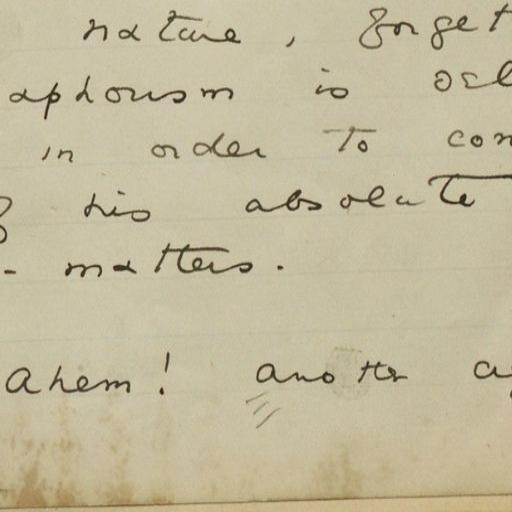 nature, forget
aphorism is
in order to con
his absolute
- matters.
Ahem! another a